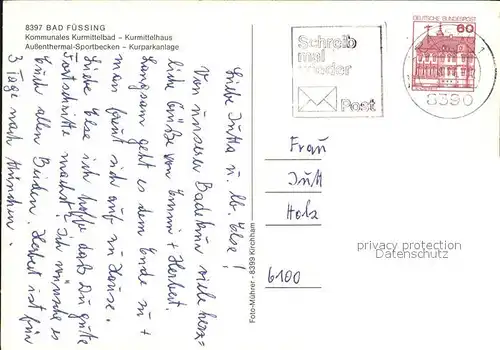 8397 BAD FÜSSING
Kommunales Kurmittelbad - Kurmittelhaus
Außenthermal-Sportbecken - Kurparkanlage
Liebe Jutta u. lb. Else!
Von unserer Badekur viele herz-
liche Grüße von Emmi + Herbert.
Langsam geht es dem Ende zu +
man freut sich auf zu Hause.
Liebe Else ich hoffe daß Du gute
Fortschritte machst! Ich wünsche es
Euch allen Beiden. Herbert ist für
3 Tage nach München.
Foto-Mührer - 8399 Kirchham
Schreib
mal
wieder
Post
DEUTSCHE BUNDESPOST
60
8390
Frau
Jutt
Holz
6100
privacy protection
Datenschutz